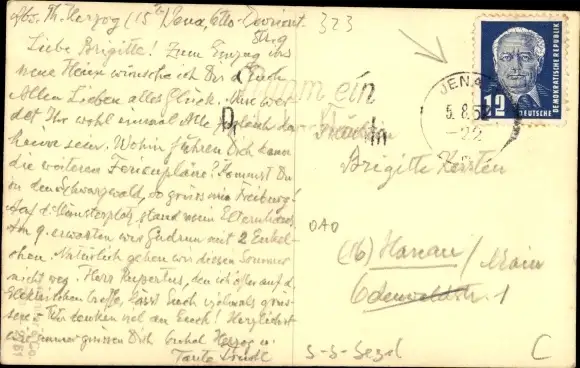 Abs. Th. Herzog (15 b) Jena, Otto-Devrient
Str. 9
323
Liebe Brigitte! Zum Einzug ins
neue Heim wünsche ich Dir & Euch
Allen Lieben alles Glück. Nun wer-
det Ihr wohl einmal Alle zugleich da-
heime sein. Wohin führen Dich dann
die weiteren Ferienpläne? Kommst Du
in den Schwarzwald, so grüss mir Freiburg!
Auf d. Münsterplatz stand mein Elternhaus.
Am 9. erwarten wir Gudrun mit 2 Enkel-
chen. Natürlich gehen wir diesen Sommer
nicht weg. Herr Rupertus, den ich öfter auf d.
treffe, lässt Euch vielmals grüs-
sen. Wir denken viel an Euch! Herzlichst
wie immer grüssen Dich Onkel Herzog u.
Tante
JENA
5.8.5
-22
12
DEUTSCHE
DEMOKRATISCHE REPUBLIK
Fräulein
Brigitte Kersten
(16) Hanau / Main
Odenwaldstr. 1
S-S-Segal
C